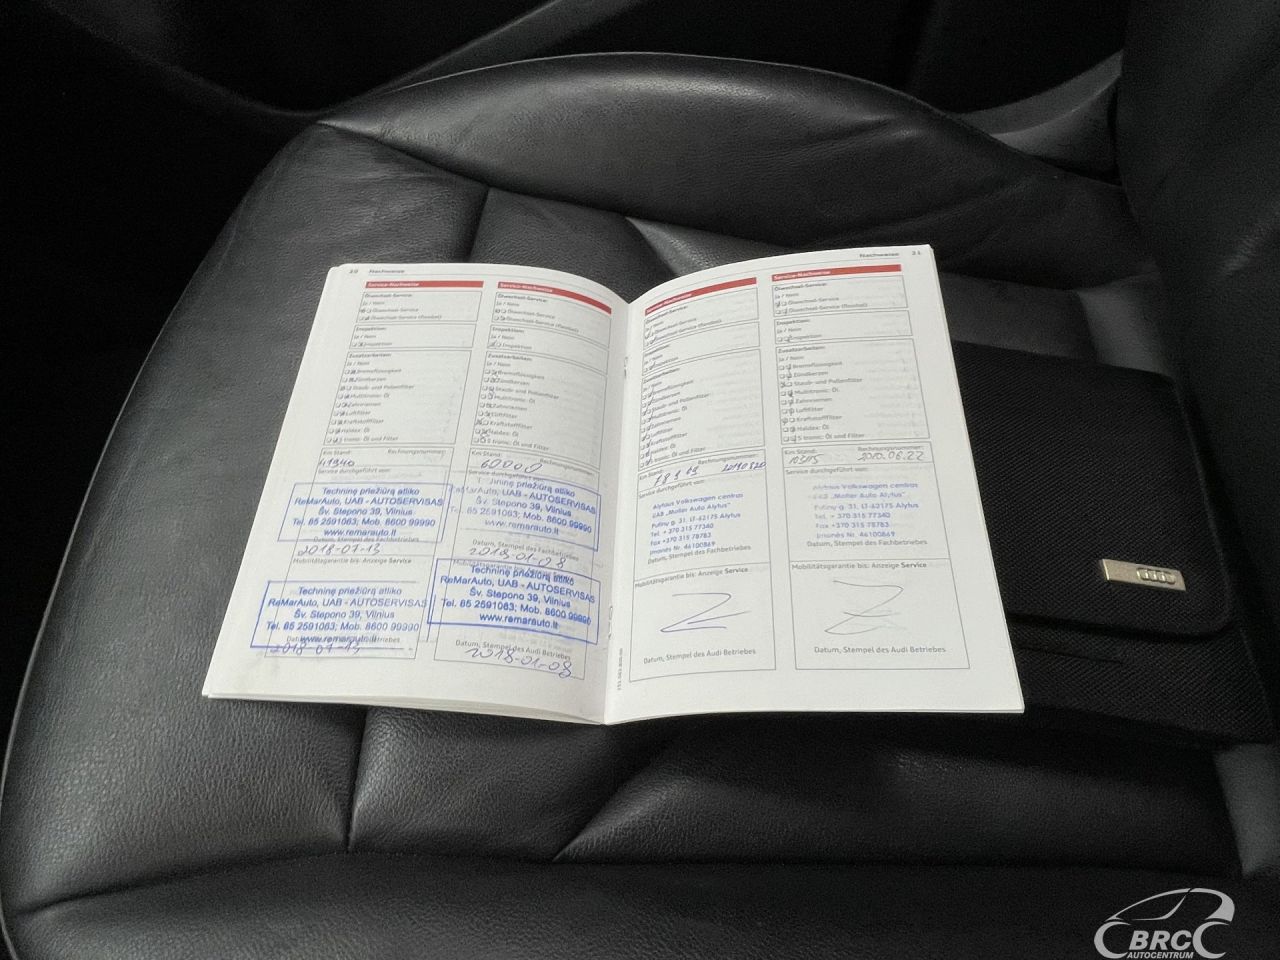 20 Nachweise
Service-Nachweise
Ölwechsel-Service:
Ja / Nein
Ölwechsel-Service
Ölwechsel-Service (flexibel)
Inspektion:
Ja / Nein
Inspektion
Zusatzarbeiten:
Ja / Nein
Bremsflüssigkeit
Zündkerzen
Staub- und Pollenfilter
Multitronic: Öl
Zahnriemen
Luftfilter
Kraftstofffilter
Haldex: Öl
S tronic: Öl und Filter
Km Stand: Rechnungsnummer:
41940
Service durchgeführt von:
Techninę priežiūrą atliko
ReMarAuto, UAB - AUTOSERVISAS
Šv. Stepono 39, Vilnius
Tel. 85 2591063; Mob. 8600 99990
www.remarauto.lt
2018-07-13
Mobilitätsgarantie bis: Anzeige Service
Techninę priežiūrą atliko
ReMarAuto, UAB - AUTOSERVISAS
Šv. Stepono 39, Vilnius
Tel. 85 2591063; Mob. 8600 99990
www.remarauto.lt
2018-07-13
Service-Nachweise
Ölwechsel-Service:
Ja / Nein
Ölwechsel-Service
Ölwechsel-Service (flexibel)
Inspektion:
Ja / Nein
Inspektion
Zusatzarbeiten:
Ja / Nein
Bremsflüssigkeit
Zündkerzen
Staub- und Pollenfilter
Multitronic: Öl
Zahnriemen
Luftfilter
Kraftstofffilter
Haldex: Öl
S tronic: Öl und Filter
Km Stand: Rechnungsnummer:
60000
Service durchgeführt von:
Techninę priežiūrą atliko
ReMarAuto, UAB - AUTOSERVISAS
Šv. Stepono 39, Vilnius
Tel. 85 2591063; Mob. 8600 99990
www.remarauto.lt
Datum, Stempel des Fachbetriebes
2018-01-08
Mobilitätsgarantie bis: Anzeige Service
Techninę priežiūrą atliko
ReMarAuto, UAB - AUTOSERVISAS
Šv. Stepono 39, Vilnius
Tel. 85 2591063; Mob. 8600 99990
www.remarauto.lt
Datum, Stempel des Audi Betriebes
2018-01-08
Nachweise 21
Service-Nachweise
Ölwechsel-Service:
Ja / Nein
Ölwechsel-Service
Ölwechsel-Service (flexibel)
Inspektion:
Ja / Nein
Inspektion
Zusatzarbeiten:
Ja / Nein
Bremsflüssigkeit
Zündkerzen
Staub- und Pollenfilter
Multitronic: Öl
Zahnriemen
Luftfilter
Kraftstofffilter
Haldex: Öl
S tronic: Öl und Filter
Km Stand: Rechnungsnummer:
20190820
Service durchgeführt von:
Alytaus Volkswagen centras
UAB „Moller Auto Alytus“
Putinų g. 31, LT-62175 Alytus
Tel. + 370 315 77340
Fax +370 315 78783
Įmonės Nr. 46100869
Datum, Stempel des Fachbetriebes
Mobilitätsgarantie bis: Anzeige Service
Datum, Stempel des Audi Betriebes
Service-Nachweise
Ölwechsel-Service:
Ja / Nein
Ölwechsel-Service
Ölwechsel-Service (flexibel)
Inspektion:
Ja / Nein
Inspektion
Zusatzarbeiten:
Ja / Nein
Bremsflüssigkeit
Zündkerzen
Staub- und Pollenfilter
Multitronic: Öl
Zahnriemen
Luftfilter
Kraftstofffilter
Haldex: Öl
S tronic: Öl und Filter
Km Stand: Rechnungsnummer:
2020.06.22
Service durchgeführt von:
Alytaus Volkswagen centras
UAB „Moller Auto Alytus“
Putinų g. 31, LT-62175 Alytus
Tel. + 370 315 77340
Fax +370 315 78783
Įmonės Nr. 46100869
Datum, Stempel des Fachbetriebes
Mobilitätsgarantie bis: Anzeige Service
Datum, Stempel des Audi Betriebes
BRC
AUTOCENTRUM